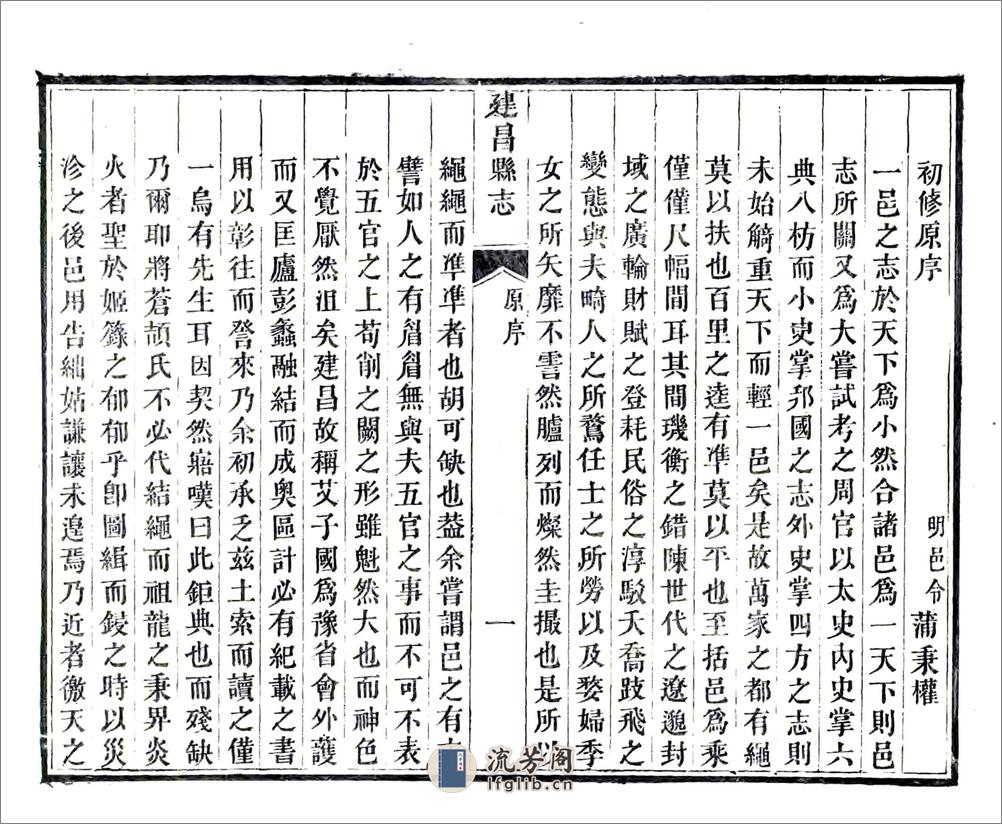 初修原序 明邑令 蒲秉權
一邑之志於天下爲小然合諸邑爲一天下則邑
志所關又爲大嘗試考之周官以太史內史掌六
典八枋而小史掌邦國之志外史掌四方之志則
未始觭重天下而輕一邑矣是故萬家之都有繩
莫以扶也百里之逵有凖莫以平也至括邑爲乘
僅僅尺幅間耳其間璣衡之錯陳世代之遼邈封
域之廣輪財賦之登耗民俗之淳駁夭喬跂飛之
變態與夫畸人之所騖任士之所勞以及婺婦季
女之所矢靡不霅然臚列而燦然圭撮也是所以
建昌縣志 原序 一
繩繩而凖凖者也胡可缺也葢余嘗謂邑之有
譬如人之有眉眉無與夫五官之事而不可不表
於五官之上苟削之闕之形雖魁然大也而神色
不覺厭然沮矣建昌故稱艾子國爲豫省會外護
而又匡廬彭蠡融結而成奧區計必有紀載之書
用以彰往而詧來乃余初承乏兹土索而讀之僅
一烏有先生耳因契然寤嘆曰此鉅典也而殘缺
乃爾耶將蒼頡氏不必代結繩而祖龍之秉畀炎
火者聖於姬籙之郁郁乎卽圖緝而鋟之時以災
沴之後邑用告絀姑謙讓未遑焉乃近者徼天之
流芳阁
lfglib.cn